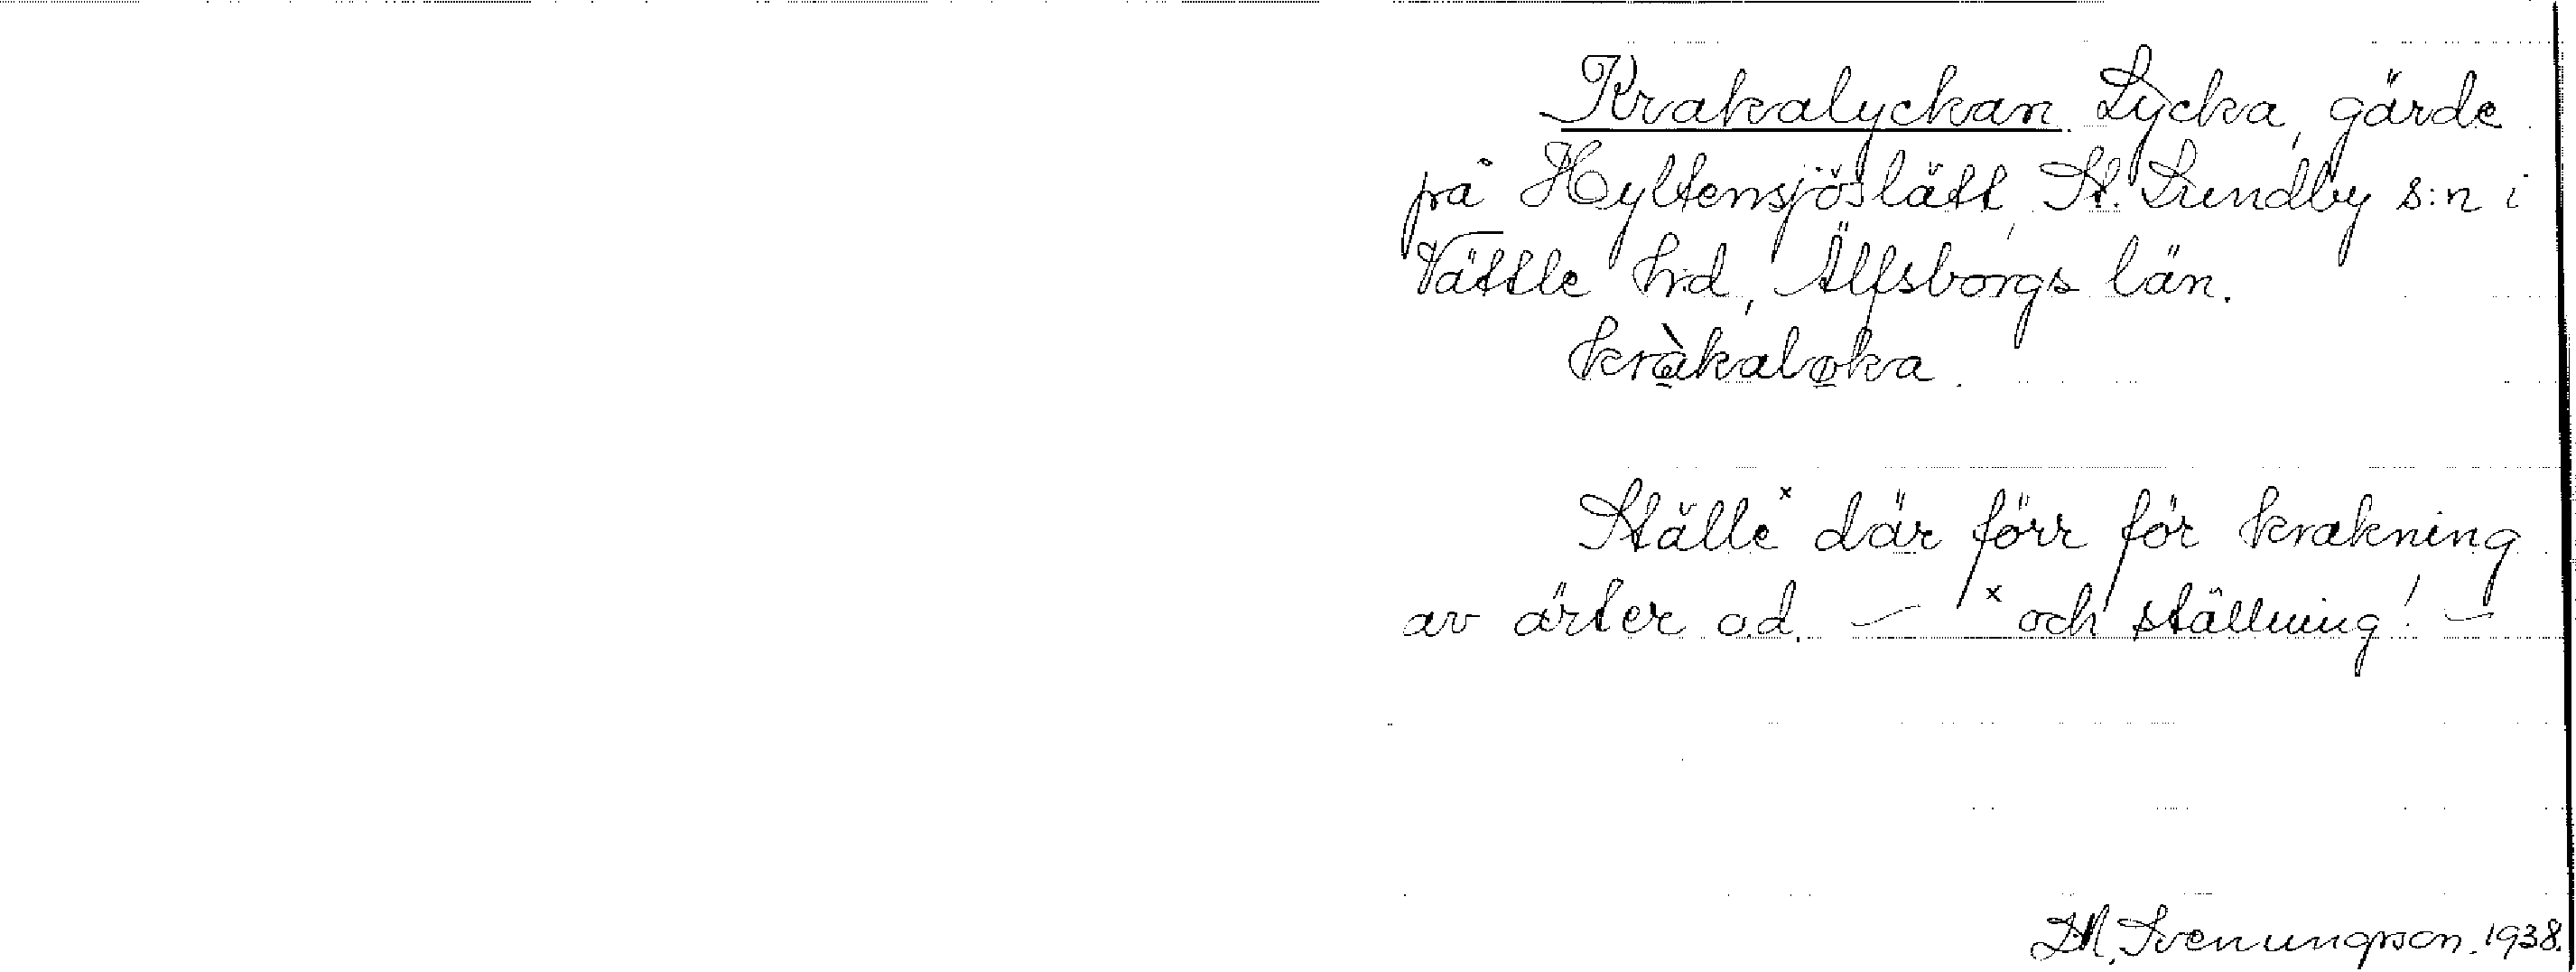 Krakalyckan. Lycka, gärde
på Hyltensjöslätt, St. Lundby s:n i
Vättle hd, Älfsborgs län.
kràkaløka.
Ställeˣ där förr för krakning
av ärter o.d. — ˣ och ställning! —
Svenungson. 1938.